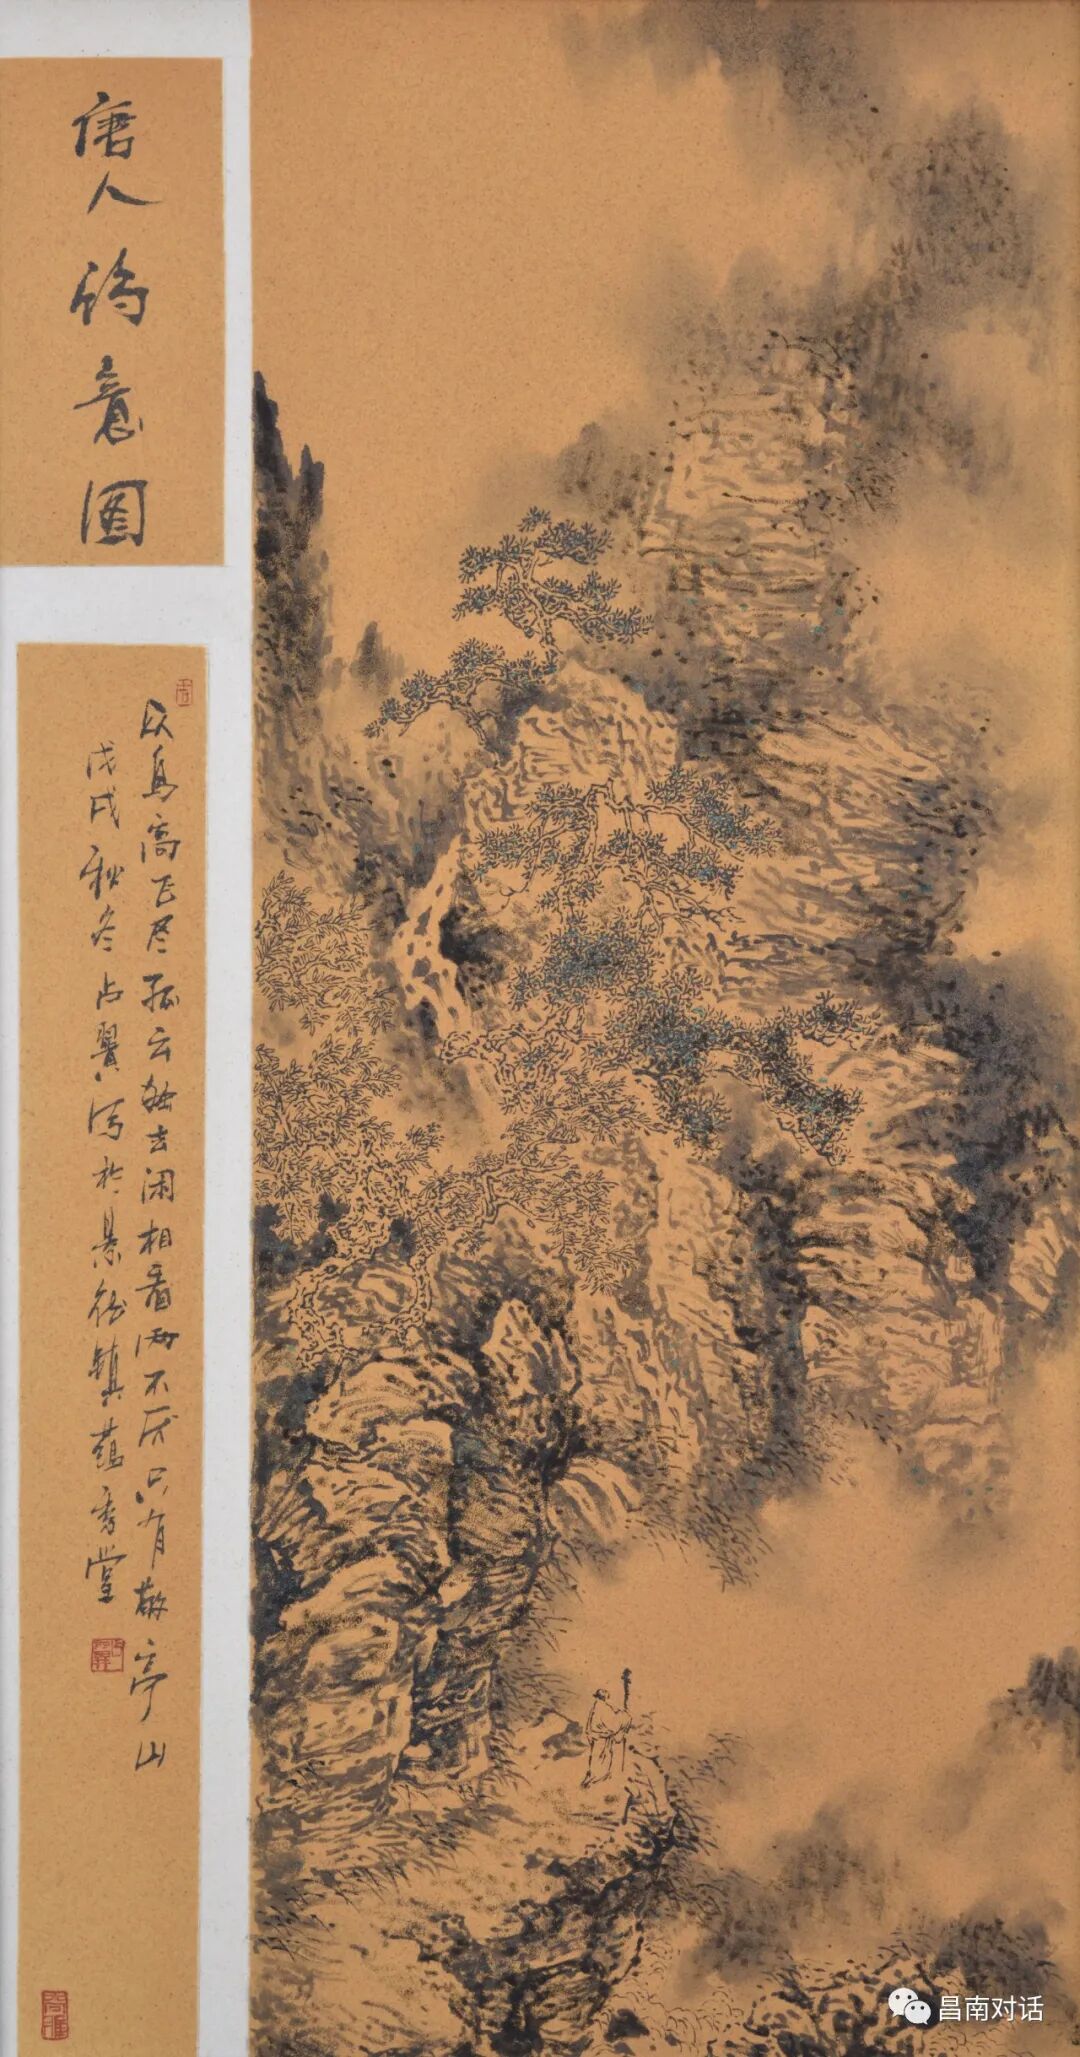 唐人诗意图
众鸟高飞尽孤云独去闲相看两不厌只有敬亭山
戊戌秋冬占翼写於景德镇蕴秀堂
昌南对话